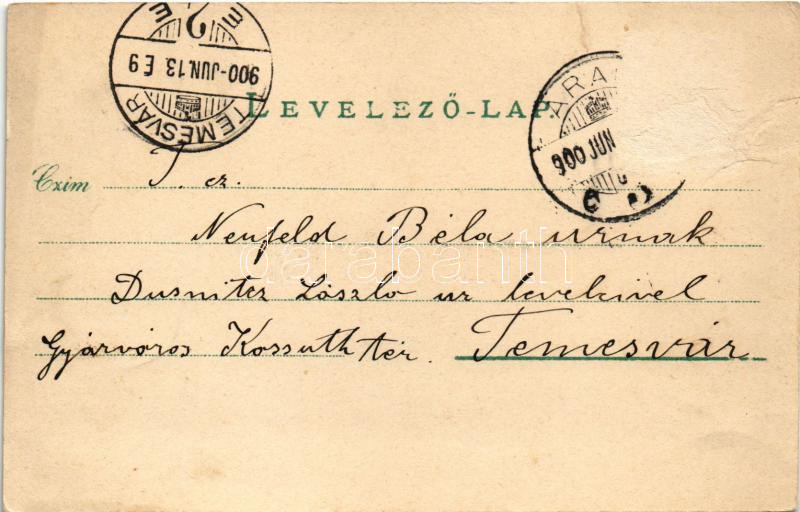 TEMESVÁR
900-JUN.13. É 9
ARA
900 JUN
LEVELEZŐ-LAP
Czim T. cz.
Neufeld Béla urnak
Dusnitcz László ur leveleivel
Gyárváros Kossuth tér. Temesvár
darabanth